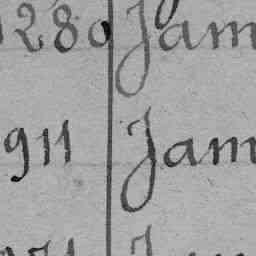 1280 Jam
911 Jam